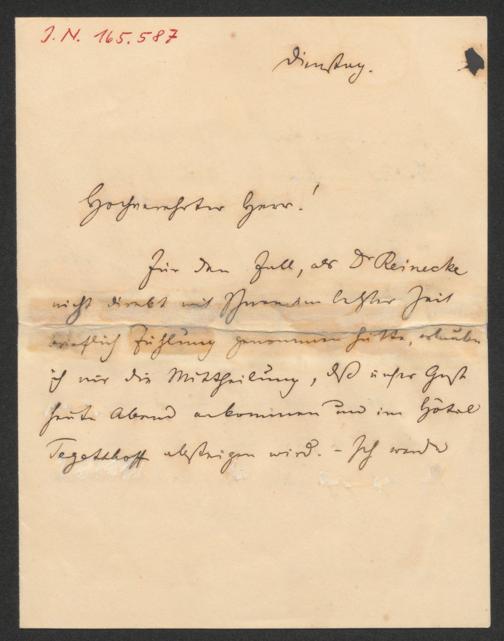 J. N. 165.587
Dienstag.
Hochverehrter Herr!
Für den Fall, als Dr Reinecke
nicht direkt mit Ihnen in letzter Zeit
brieflich Fühlung genommen hätte, erlaube
ich mir die Mittheilung, daß unser Gast
heute Abend ankommen und im Hôtel
Tegetthoff absteigen wird. – Ich werde